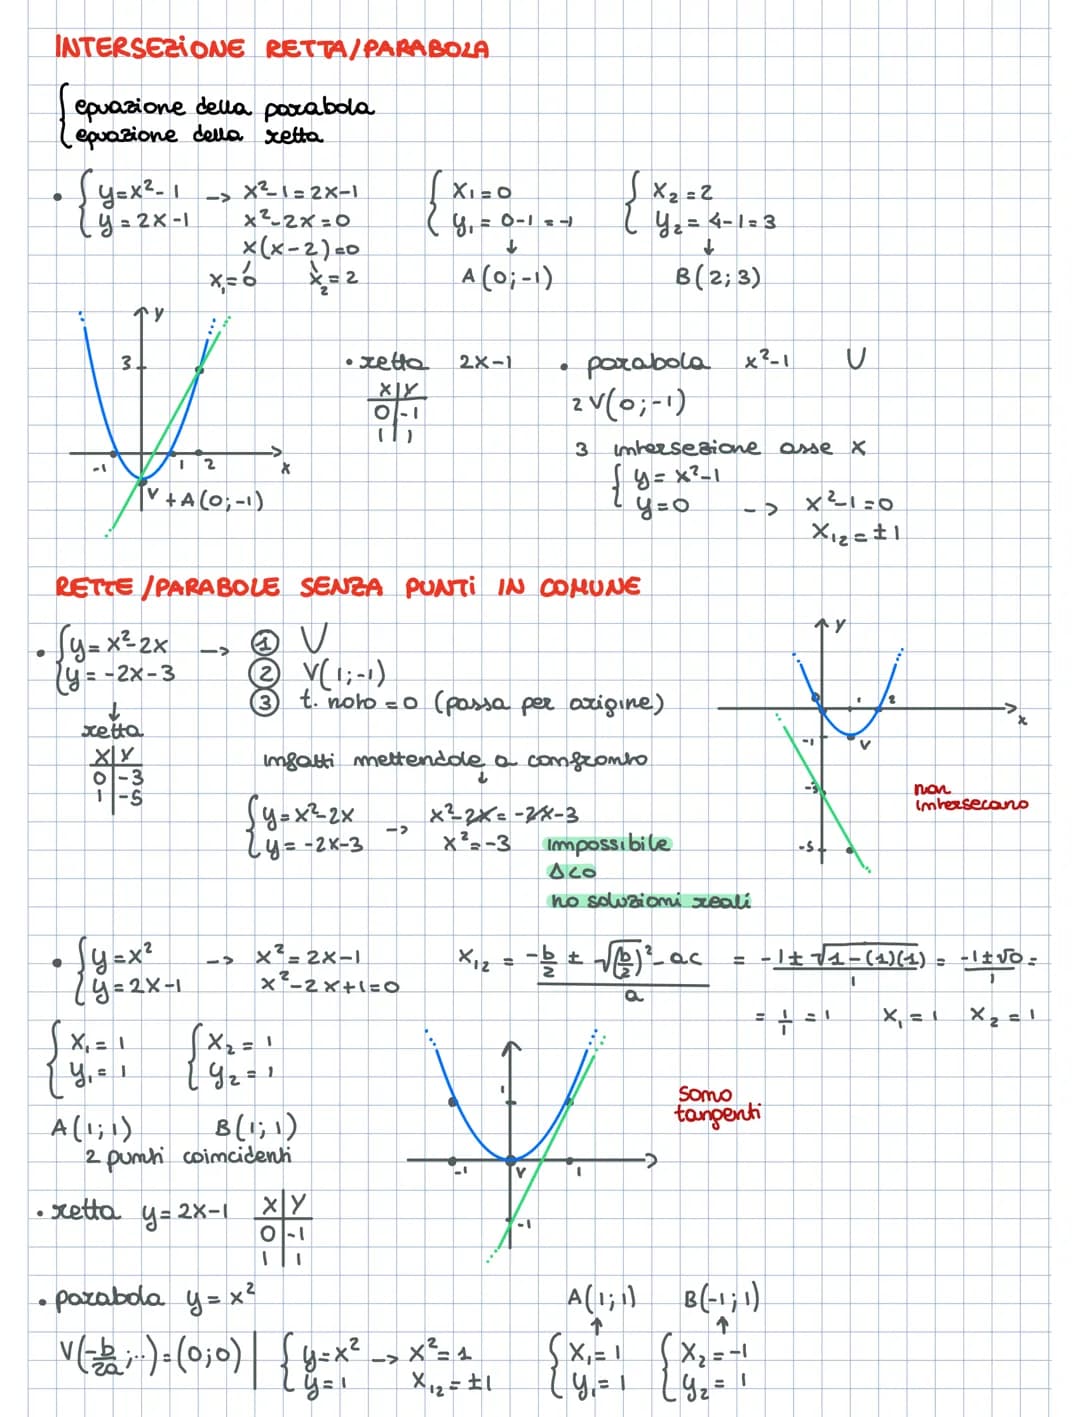 INTERSEZIONE RETTA/PARABOLA
{ equazione della parabola
{ equazione della retta
• { y=x²-1 -> x²-1=2x-1 { x₁=0 { x₂=2
{ y=2x-1 x²-2x=0 { y₁=0-1=-1 { y₂=4-1=3
x(x-2)=0 ↓ ↓
x₁=0 x₂=2 A(0;-1) B(2;3)
y
3
-1 1 2 x
V+A(0;-1)
• retta 2x-1
x|y
0|-1
1|1
• parabola x²-1 U
2 V(0;-1)
3 intersezione asse x
{ y=x²-1
{ y=0 -> x²-1=0
x₁₂=±1
RETTE/PARABOLE SENZA PUNTI IN COMUNE
• { y=x²-2x -> ① U
{ y=-2x-3 ② V(1;-1)
③ t. noto=0 (passa per origine)
↓
retta
x|y
0|-3
1|-5
infatti mettendole a confronto
↓
{ y=x²-2x -> x²-2x=-2x-3
{ y=-2x-3 x²=-3 impossibile
Δ<0
no soluzioni reali
y
1 2 x
-1 V
-3
-5
non
intersecano
• { y=x² -> x²=2x-1 x₁₂ = (-b/2 ± √((b/2)²-ac))/a = (-1±√(1-(1)(1)))/1 = (-1±√0)/1 =
{ y=2x-1 x²-2x+1=0
= 1/1 = 1 x₁=1 x₂=1
{ x₁=1 { x₂=1
{ y₁=1 { y₂=1
A(1;1) B(1;1)
2 punti coincidenti
1
-1 V 1
-1
sono
tangenti
• retta y=2x-1
x|y
0|-1
1|1
• parabola y=x² A(1;1) B(-1;1)
↑ ↑
V(-b/2a;..)=(0;0) | { y=x² -> x²=1 { x₁=1 { x₂=-1
{ y=1 x₁₂=±1 { y₁=1 { y₂=1